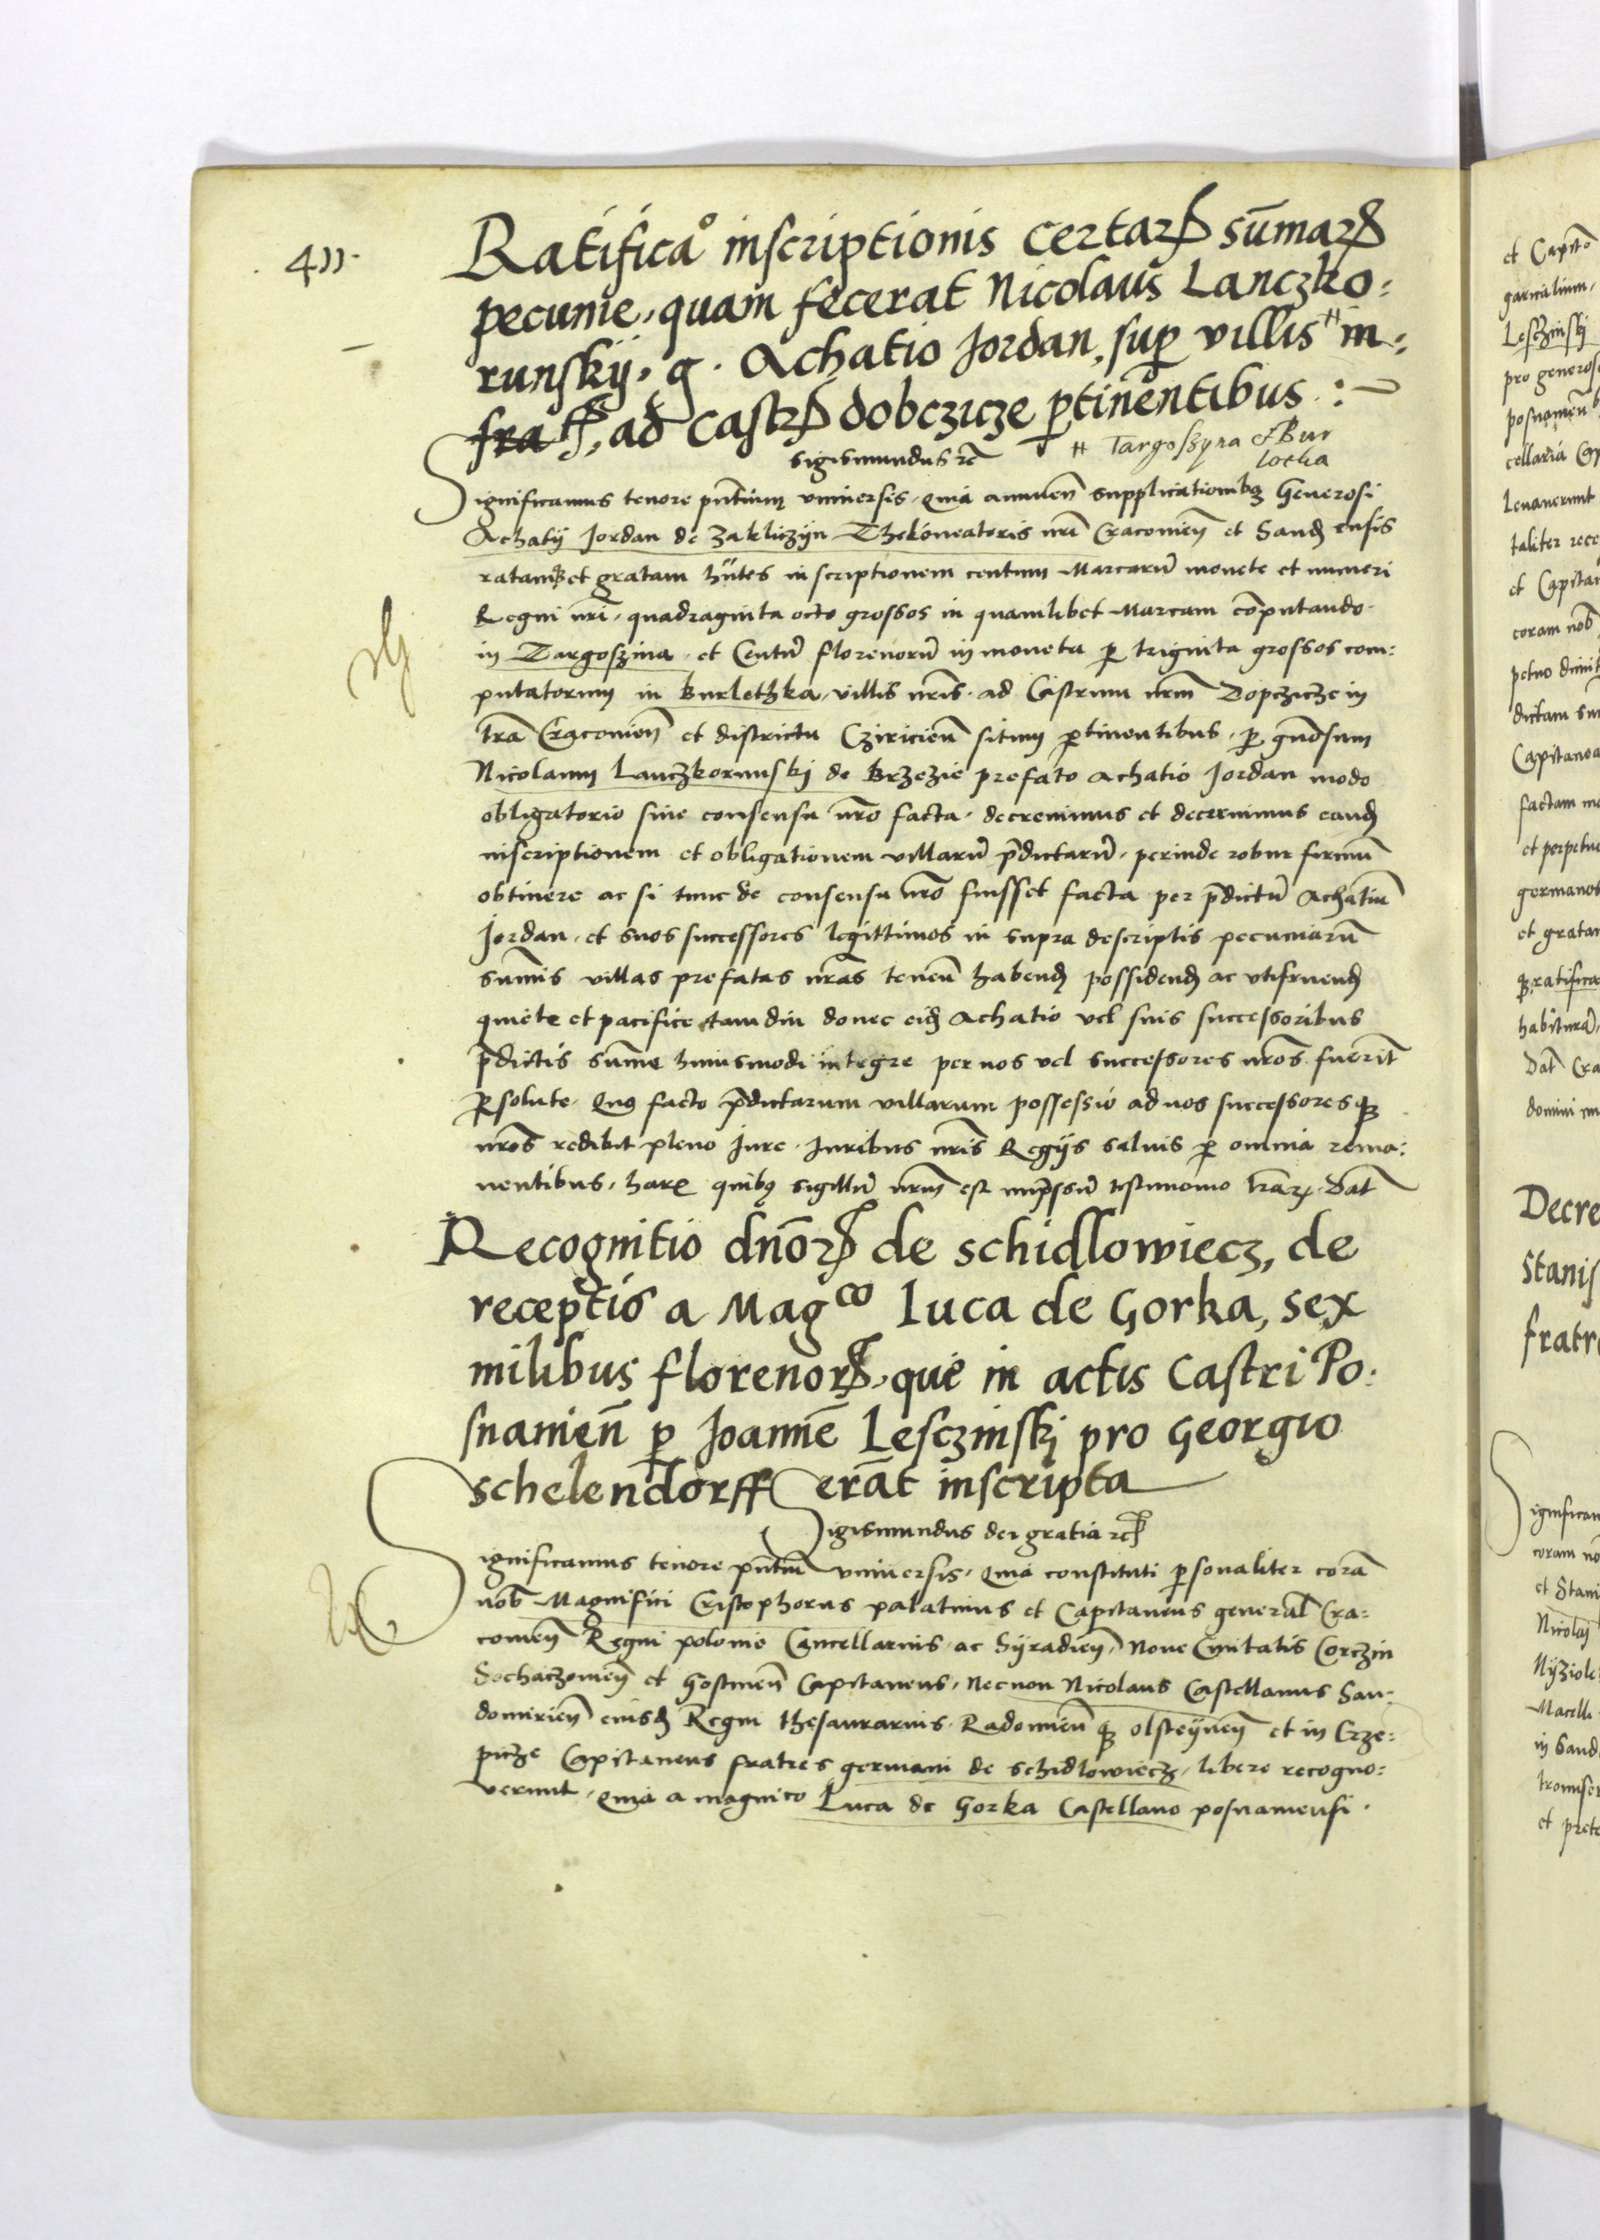 411.
Ratificaº inscriptionis certarꝝ sūmarꝝ
pecunie, quam fecerat Nicolaus Lanczko:
runskij, g. Achatio Jordan, suꝑ villis # in:
fra ad castrꝝ dobczicze ꝑtinentibus :
# Targoszyna & Bur
loczka
Sigismundus rc̄
Significamus tenore pn̄tium vniuersis, Quia annuen̄ supplicationibꝫ Generosi
Achatij Jordan de Zakliczijn Theloneatoris nr̄i Cracouien̄ et Sandensis
ratamqꝫ et gratam hn̄tes inscriptionem centum Marcarū monete et numeri
Regni nr̄i, quadraginta octo grossos in quamlibet Marcam cōputando
in Targoszina, et Centū florenorū in moneta ꝑ triginta grossos com:
putatorum in Burletzka, villis nr̄is ad Castrum nrm̄ Dopczicze in
tr̄a Cracouien̄ et districtu Cziricien̄ situm ꝑtinentibus, ꝑ gn̄osum
Nicolaum Lanczkorunski de Brzezie prefato Achatio Jordan modo
obligatorio sine consensu nr̄o facta, decreuimus et decernimus eand̄
inscriptionem et obligationem villarū p̄dictarū, perinde robur firmū
obtinere ac si tunc de consensu nr̄o fuisset facta per p̄dictū Achatiū
Jordan, et suos successores legittimos in supra descriptis pecuniarū
sum̄is villas prefatas nr̄as tenen̄ habend̄ possidend̄ ac vtifruend̄
quiete et pacifice tamdiu donec eid̄ Achatio vel suis successoribus
p̄dictis sum̄e huiusmodi integre per nos vel successores nr̄os fuerīt
ꝑsolute. Quo facto p̄dictarum villarum possessio ad nos successoresqꝫ
nr̄os redibit pleno Jure. Juribus nr̄is Regijs saluis ꝑ omnia rema:
nentibus, harꝝ quibꝫ sigillū nrm̄ est imp̄ssū testimonio lr̄arꝝ. Dat̄
Recognitio dn̄orꝝ de schidlowiecz, de
receptis a Magco Luca de Gorka, sex
milibus florenorꝝ, que in actis Castri Po:
snanien̄ ꝑ Joannē Lesczinskj pro Georgio
schelendorff erāt inscripta
Sigismundus dei gratia rc̄
Significamus tenore pn̄tiū vniuersis, Quia constituti ꝑsonaliter corā
nob̄ Magnifici Cristophorus palatinus et Capitaneus general̄ Cra:
couien̄ Regni polonie Cancellarius ac Sijradien̄, Noue Ciuitatis Corczin
Sochaczouien̄ et Gostinen̄ Capitaneus, Necnon Nicolaus Castellanus San:
domirien̄ eiusd̄ Regni thesaurarius Radomien̄ qꝫ olsteijnen̄ et in Crze:
picze Capitaneus fratres germani de Schidlowiecz, libere recogno:
uerunt, Quia a magnico Luca de Gorka Castellano posnaniensi.
et Capito
Lesczinskj
pro generos
cellaria
Leuauerunt
taliter rece
et Capitan
coram nob̄
dictam su
Capitanea
factam
et perpetu
germanos
et gratam
ratifica
Dat̄ Cra
domini
Decre
Stanis
fratr
Significam
coram no
et Stani
Nicolaj
in Sand
et prete